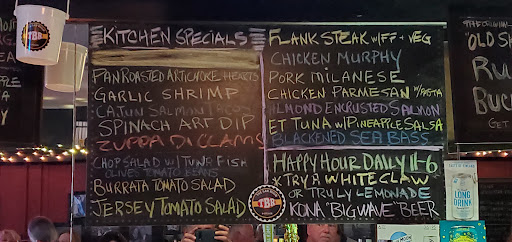 KITCHEN SPECIALS
PAN ROASTED ARTICHOKE HEARTS
GARLIC SHRIMP
CAJUN SALMON TACOS
SPINACH ART DIP
ZUPPA DI CLAMS
CHOP SALAD W/ TUNA FISH
OLIVES TOMATO BEANS
BURRATA TOMATO SALAD
JERSEY TOMATO SALAD
FLANK STEAK W/FF + VEG
CHICKEN MURPHY
PORK MILANESE
CHICKEN PARMESAN W/PASTA
ALMOND ENCRUSTED SALMON
ET TUNA W/PINEAPPLE SALSA
BLACKENED SEA BASS
HAPPY HOUR DAILY 11-6
TRY A WHITE CLAW
OR TRULY LEMONADE
KONA "BIG WAVE" BEER
TBR
TBR
"OLD SH
RU
BUC
GET
LONG
DRINK